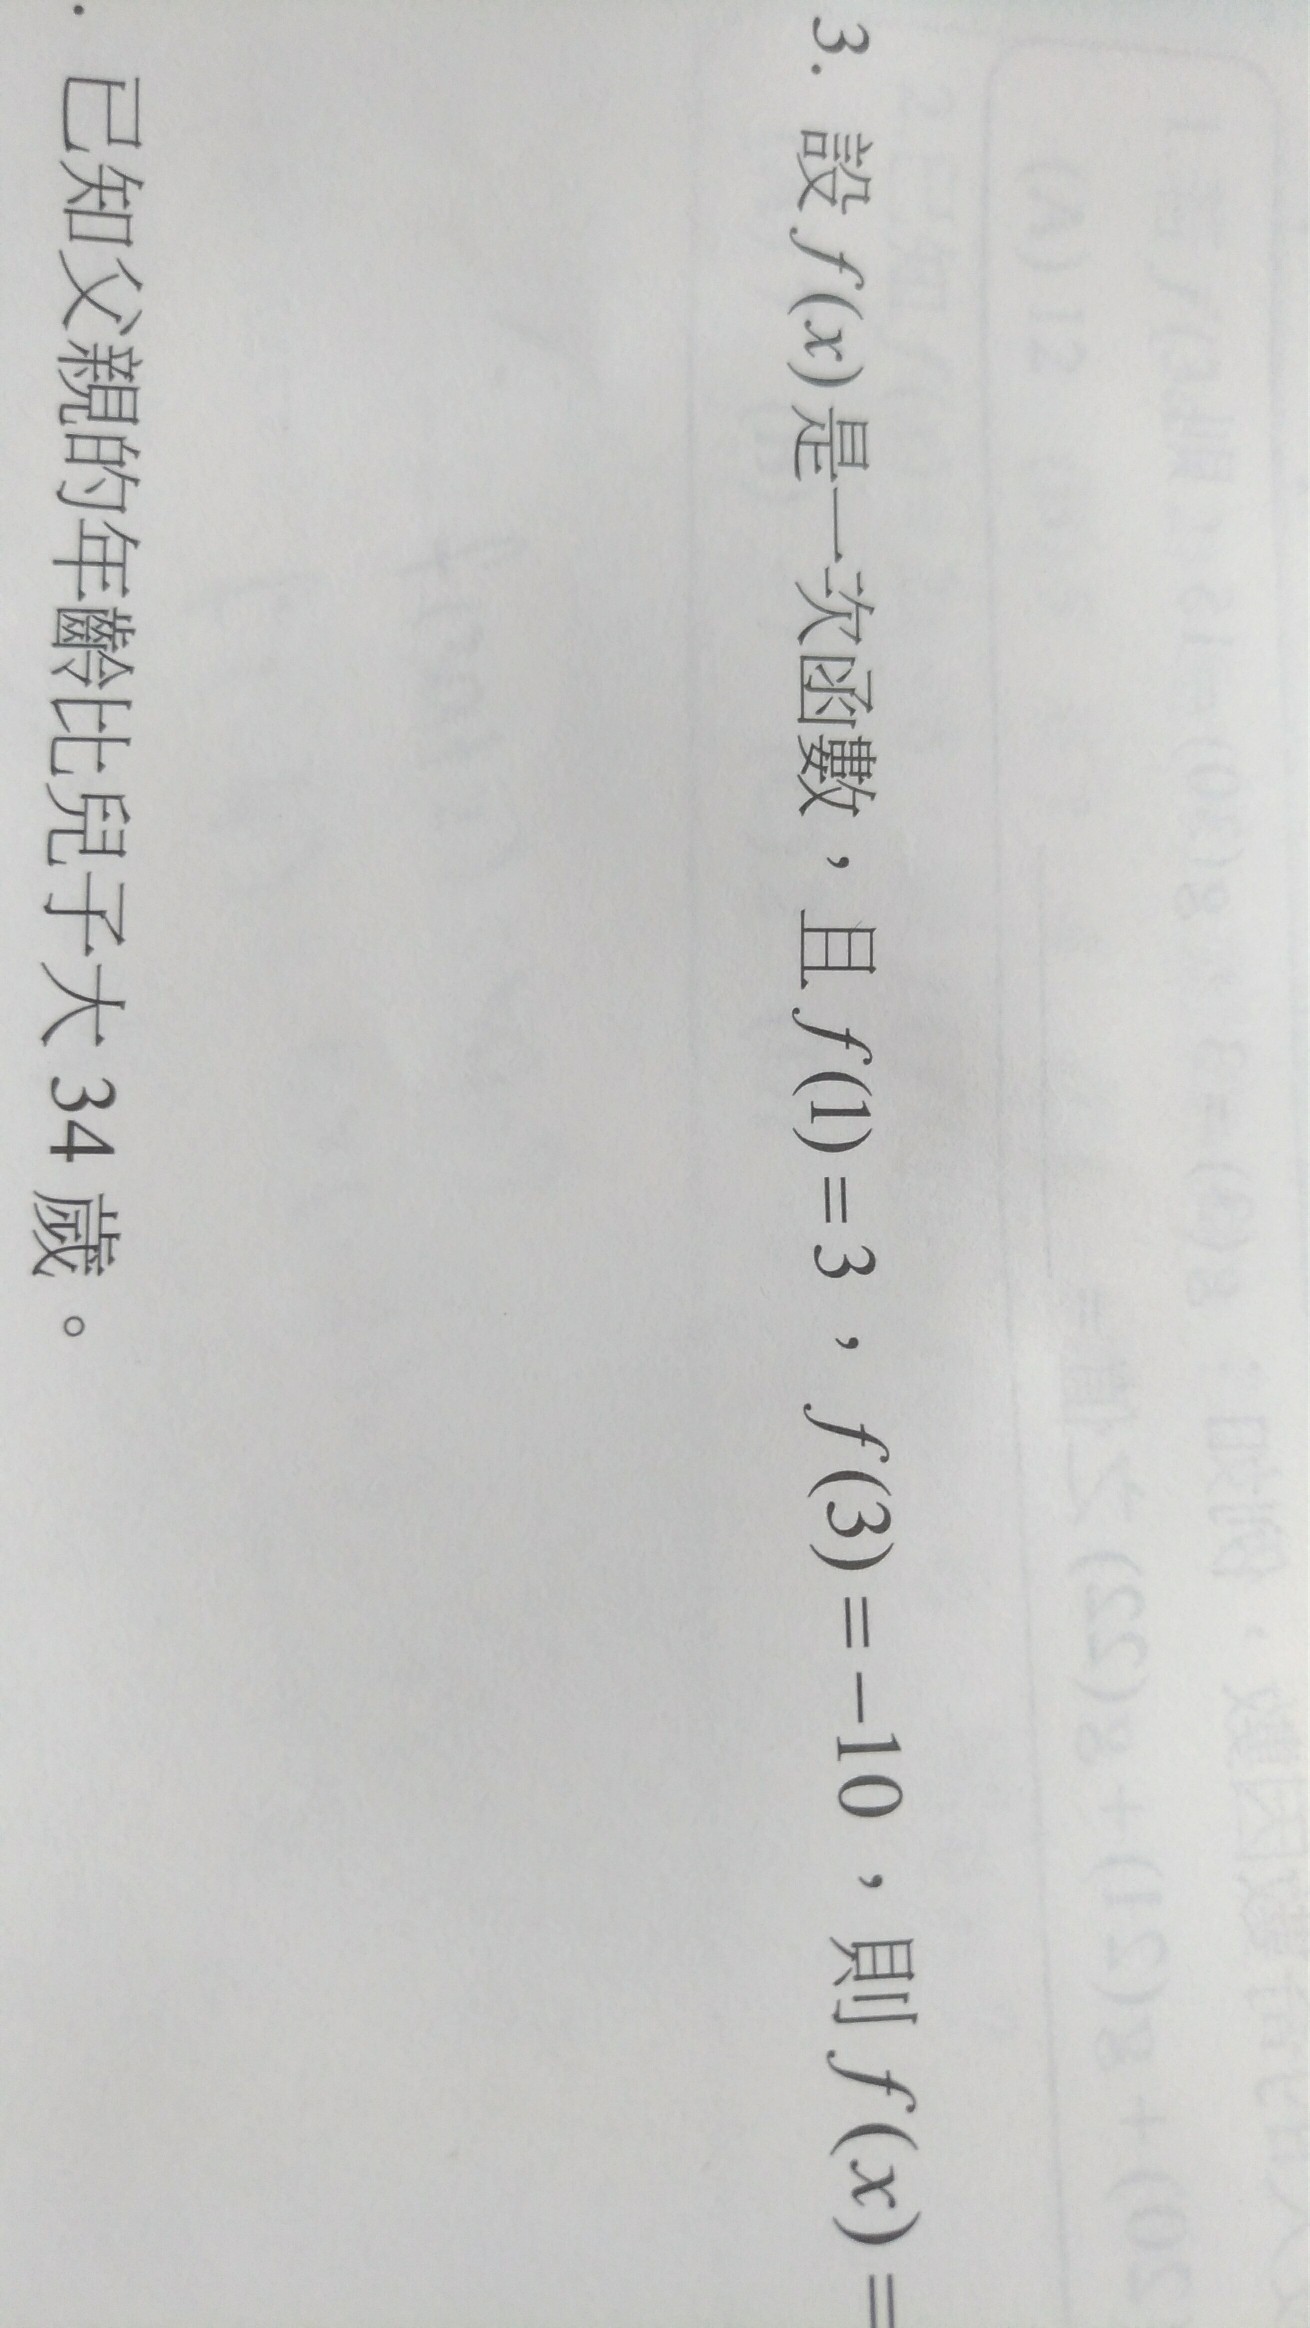 3. 設 f(x) 是一次函數，且 f(1)=3，f(3)=-10，則 f(x)=
. 已知父親的年齡比兒子大 34 歲。